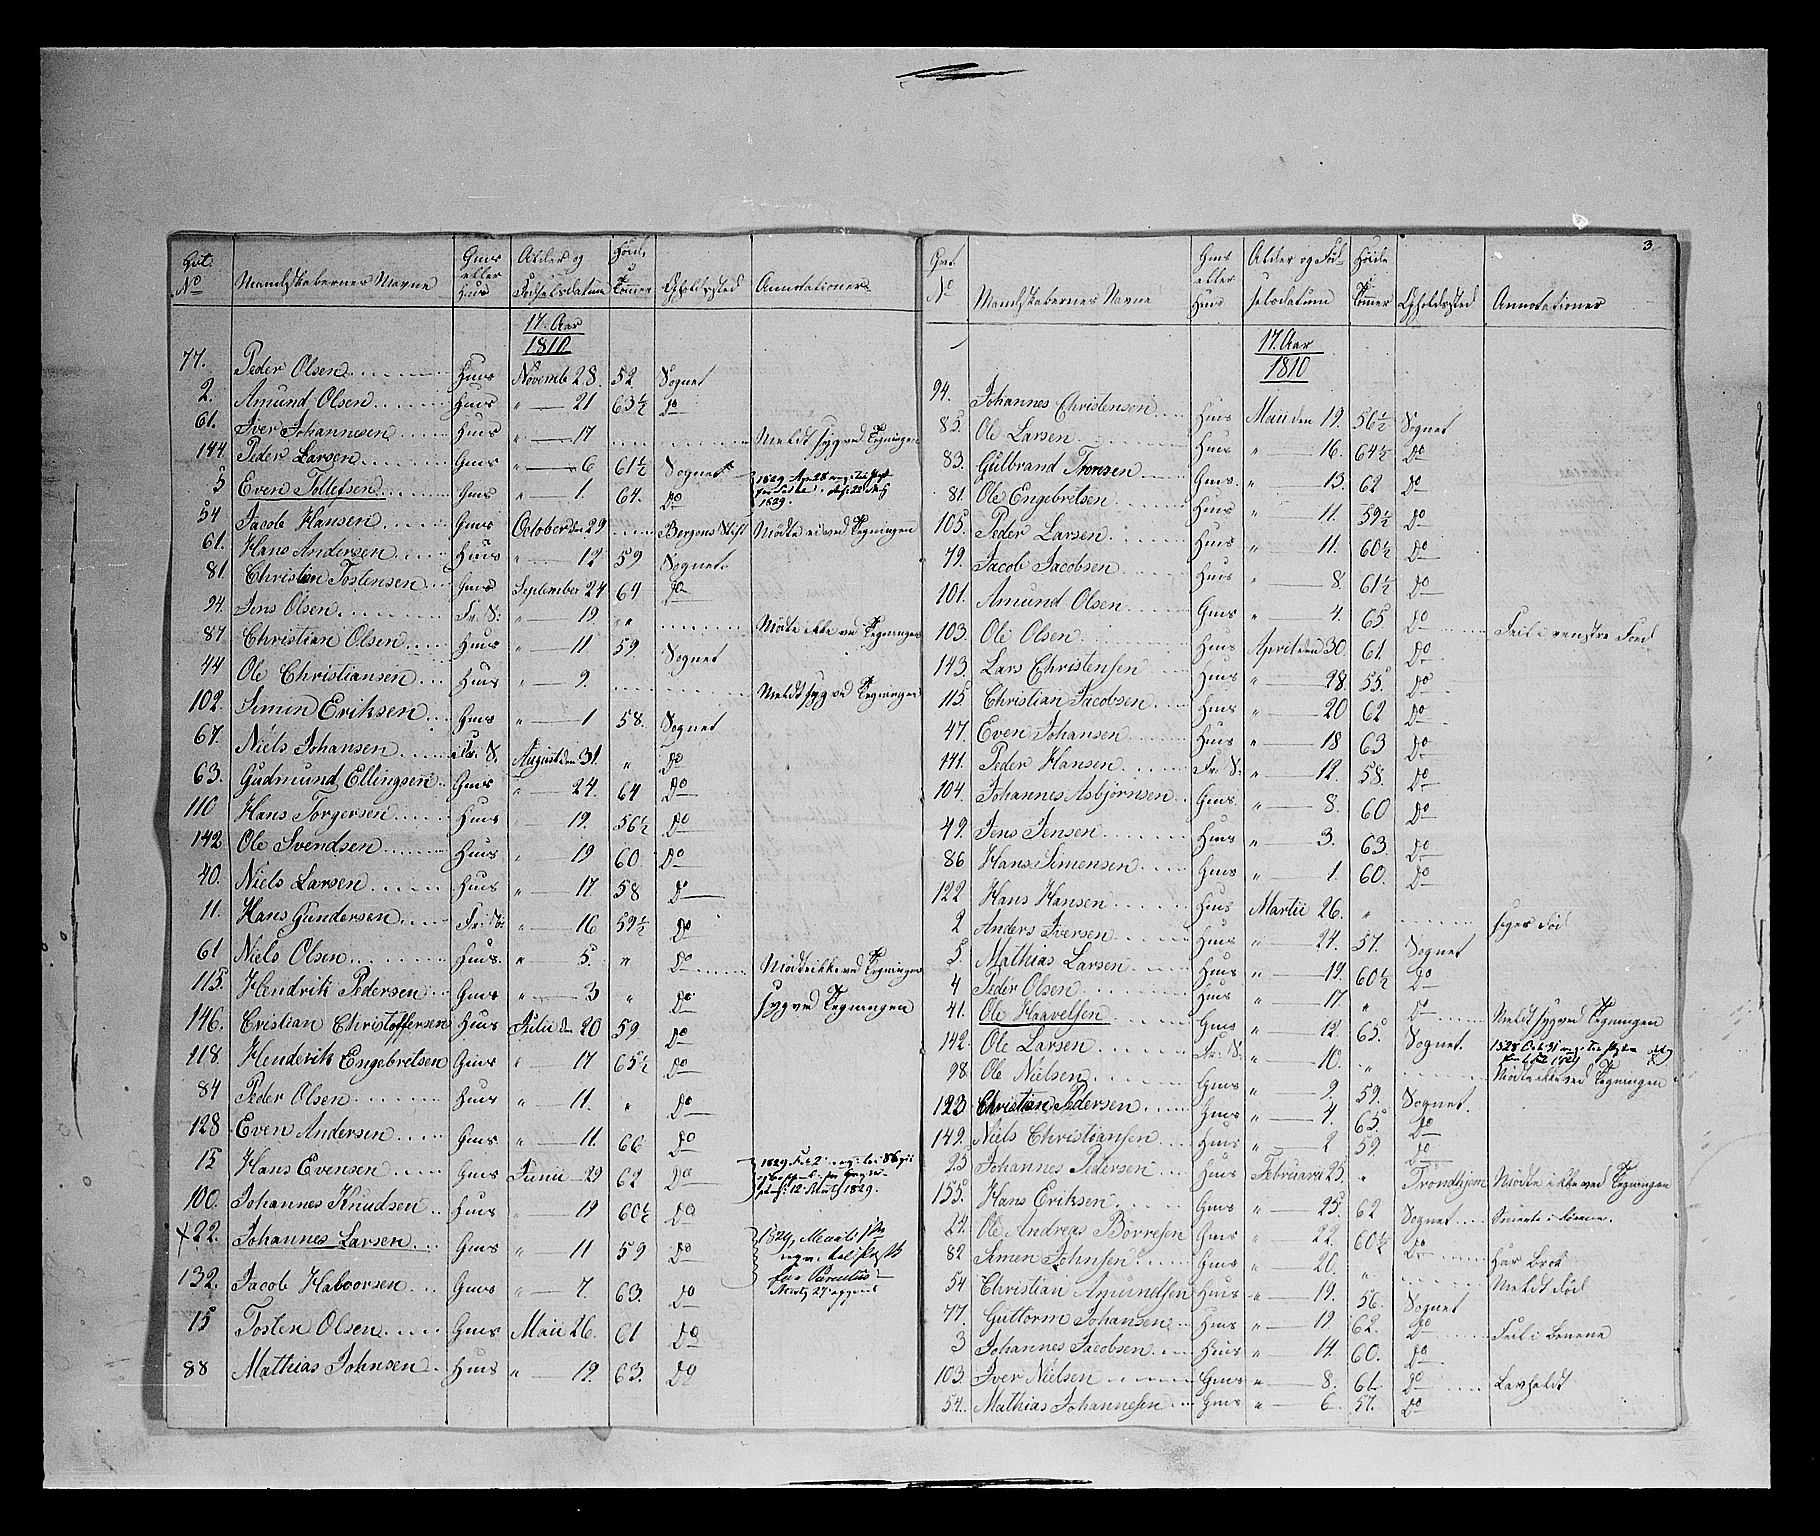 No Mandskabernes Navne eller Huus Alder og Fødselsdatum Høide Tommer Opholdssted Annotationer
17. Aar
1810
77. Peder Olsen Huus Novemb 28. 52 Sognet
2. Amund Olsen Huus " 21 63½ Do
61. Iver Johannesen Huus " 17 Meldt syg ved Tegningen
144. Peder Larsen Gms " 6 61½ Sognet
5 Even Tollefsen Gms " 1. 67. Do 1829.
54 Jacob Hansen Gms October den 29 Bergens Mødte ei ved Tegningen
61. Hans Andersen Huus " 12 59 Sognet
81. Christian Tostensen Gms September 24 64 Do
94. Jens Olsen Fr: S: " 19. " Mødte ikke ved Tegningen
87. Christian Olsen Huus " 11 59. Sognet
44 Ole Christiansen Huus " 9. Meldt syg ved Tegningen
102. Simen Eriksen Huus " 1 58. Sognet
67. Niels Johansen Fr: S. August den 31. " Do
63. Gudmund Ellingsen Gms " 24. 64 Do
110 Hans Torgersen Huus " 19. 56½ Do
142 Ole Svendsen Huus " 19 60. Do
40. Niels Larsen Huus " 17 58 Do
11. Hans Gundersen " 16 59½ Do
61 Niels Olsen Huus " 5. " Do Mødte ikke ved Tegningen
115. Hendrik Pedersen Gms " 3 " Do syg ved Tegningen
146. Cristian Christoffersen Huus Julii den 20 59. Do
118. Henderik Engebretsen Gms " 17 65½ Do
84 Peder Olsen Huus " 11. " Do
128 Even Andersen Gms " 11. 66 Do
15 Hans Evensen Gms Junii 29 62 Do 1829.
100. Johannes Knudsen Huus " 19 60½ Do
× 22. Johannes Larsen Gms " 11 59 Do 1829
132. Jacob Haavorsen Gms " 7. 63. Do
15 Tosten Olsen Gms Maii 26. 61 Do
88 Mathias Johnsen Huus " 19. 63. Do
3
No Mandskabernes Navne eller Huus Alder og Fødselsdatum Høide Tommer Opholdssted Annotationer
17. Aar
1810
94. Johannes Christensen Huus Maii den 19. 56½ Sognet
85. Ole Larsen Huus " 16. 64½ Do
83. Gulbrand Tronsen Gms. " 13. 62 Do
81. Ole Engebretsen Huus " 11. 59½ Do
105. Peder Larsen Huus " 11. 60½ Do
79. Jacob Jacobsen Huus " 8. 61½ Do
101. Amund Olsen Gms " 4. 65 Do Feil i venstre Fod
103. Ole Olsen Huus April den 30. 61. Do
143. Lars Christensen Huus " 28. 55. Do
115. Christian Jacobsen Huus " 20 62 Do
47. Even Johansen Huus " 18 63 Do
141. Peder Hansen Fr: S: " 12. 58. Do
104. Johannes Asbjørnsen Gms. " 8. 60 Do
49. Jens Jensen Huus " 3. 63. Do
86 Hans Simensen Huus " 1. 60. Do
122 Hans Hansen Huus Martii 26. " siges død
2 Anders Iversen Huus " 24. 57. Sognet
5. Mathias Larsen Huus " 19. 60½ Do
4 Peder Olsen Huus " 17 " Do Meldt syg ved Tegningen
41. Ole Haavelsen Gms " 12. 65. Sognet. 1828
142. Ole Larsen Fr: S: " 10. " Mødte ikke ved Tegningen
98. Ole Nielsen Gms " 9. 59. Sognet.
123 Christian Pedersen Huus " 4. 65. Do
149. Niels Christiansen Huus " 2 59. Do
25 Johannes Pedersen Huus Februarii 25. " Trondhjem Mødte ikke ved Tegningen
155. Hans Eriksen Gms " 25 62 Sognet
14. Ole Andreas Børresen Gms " 22. 60½ Do Har Brok
82 Simen Johnsen Huus " 20. " Meldt død
54 Christian Amundsen Huus " 19. 56. Sognet
77. Guttorm Johansen Huus " 19 62. Do Feil i Benene
3 Johannes Jacobsen Huus " 14. 60. Do
103. Iver Nielsen Gms " 8. 61. Do Lavhaldt
54. Mathias Johannesen Gms " 6. 57. Do